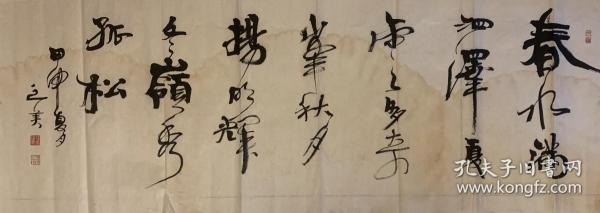 春水满
四泽夏
云多奇
峰秋月
扬明辉
冬岭秀
孤松
甲申夏月
之美
孔夫子旧书网
www.kongfz.com